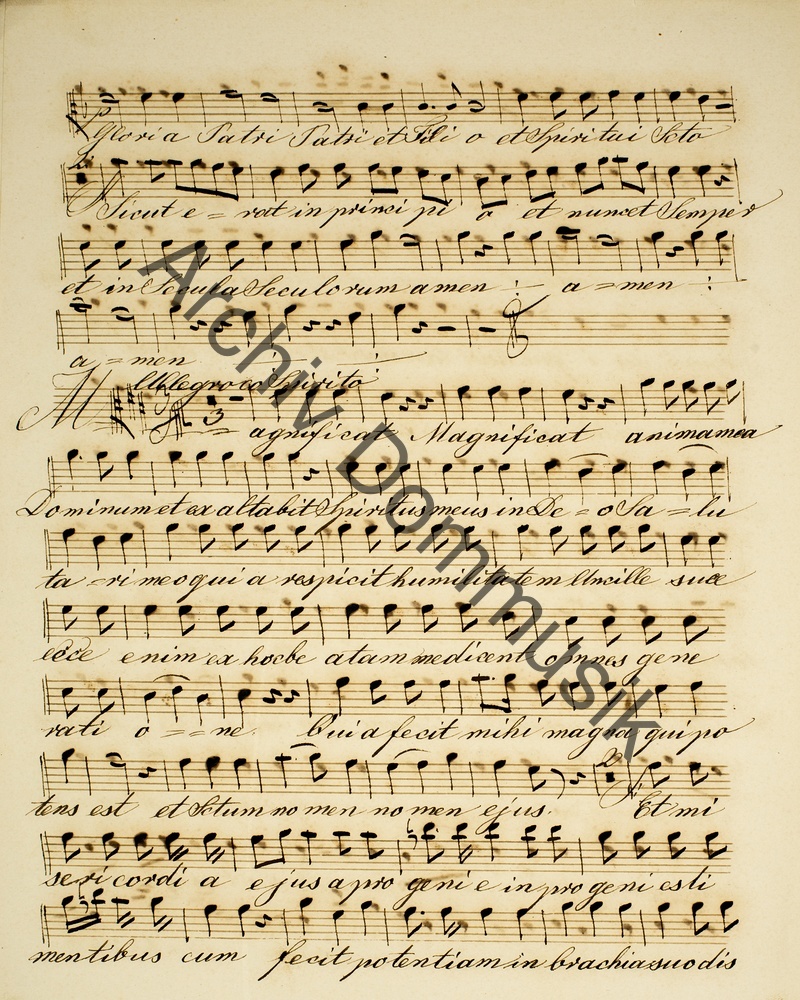 Gloria Patri Patri et Fili o et Spiritui Scto
2.
Sicut e = rat in princi pi o et nunc et Semper
et in Secula Seculorum amen :- a = men :
a = men
Allegro co Spirito
M 3
agnificat Magnificat anima mea
Dominum et exaltabit Spiritus meus in De = o Sa = lu
ta = ri meo qui a respicit humilitatem Ancille suae
ecce enim ex hoc be atam me dicent omnes gene
rati o = = ne. Quia fecit mihi magna qui po
tens est et Sctum no men no men ejus. 2 Et mi
sericordi a ejus a pro geni e in pro geni es ti
mentibus cum fecit potentiam in brachia suo dis
Archiv Dommusik